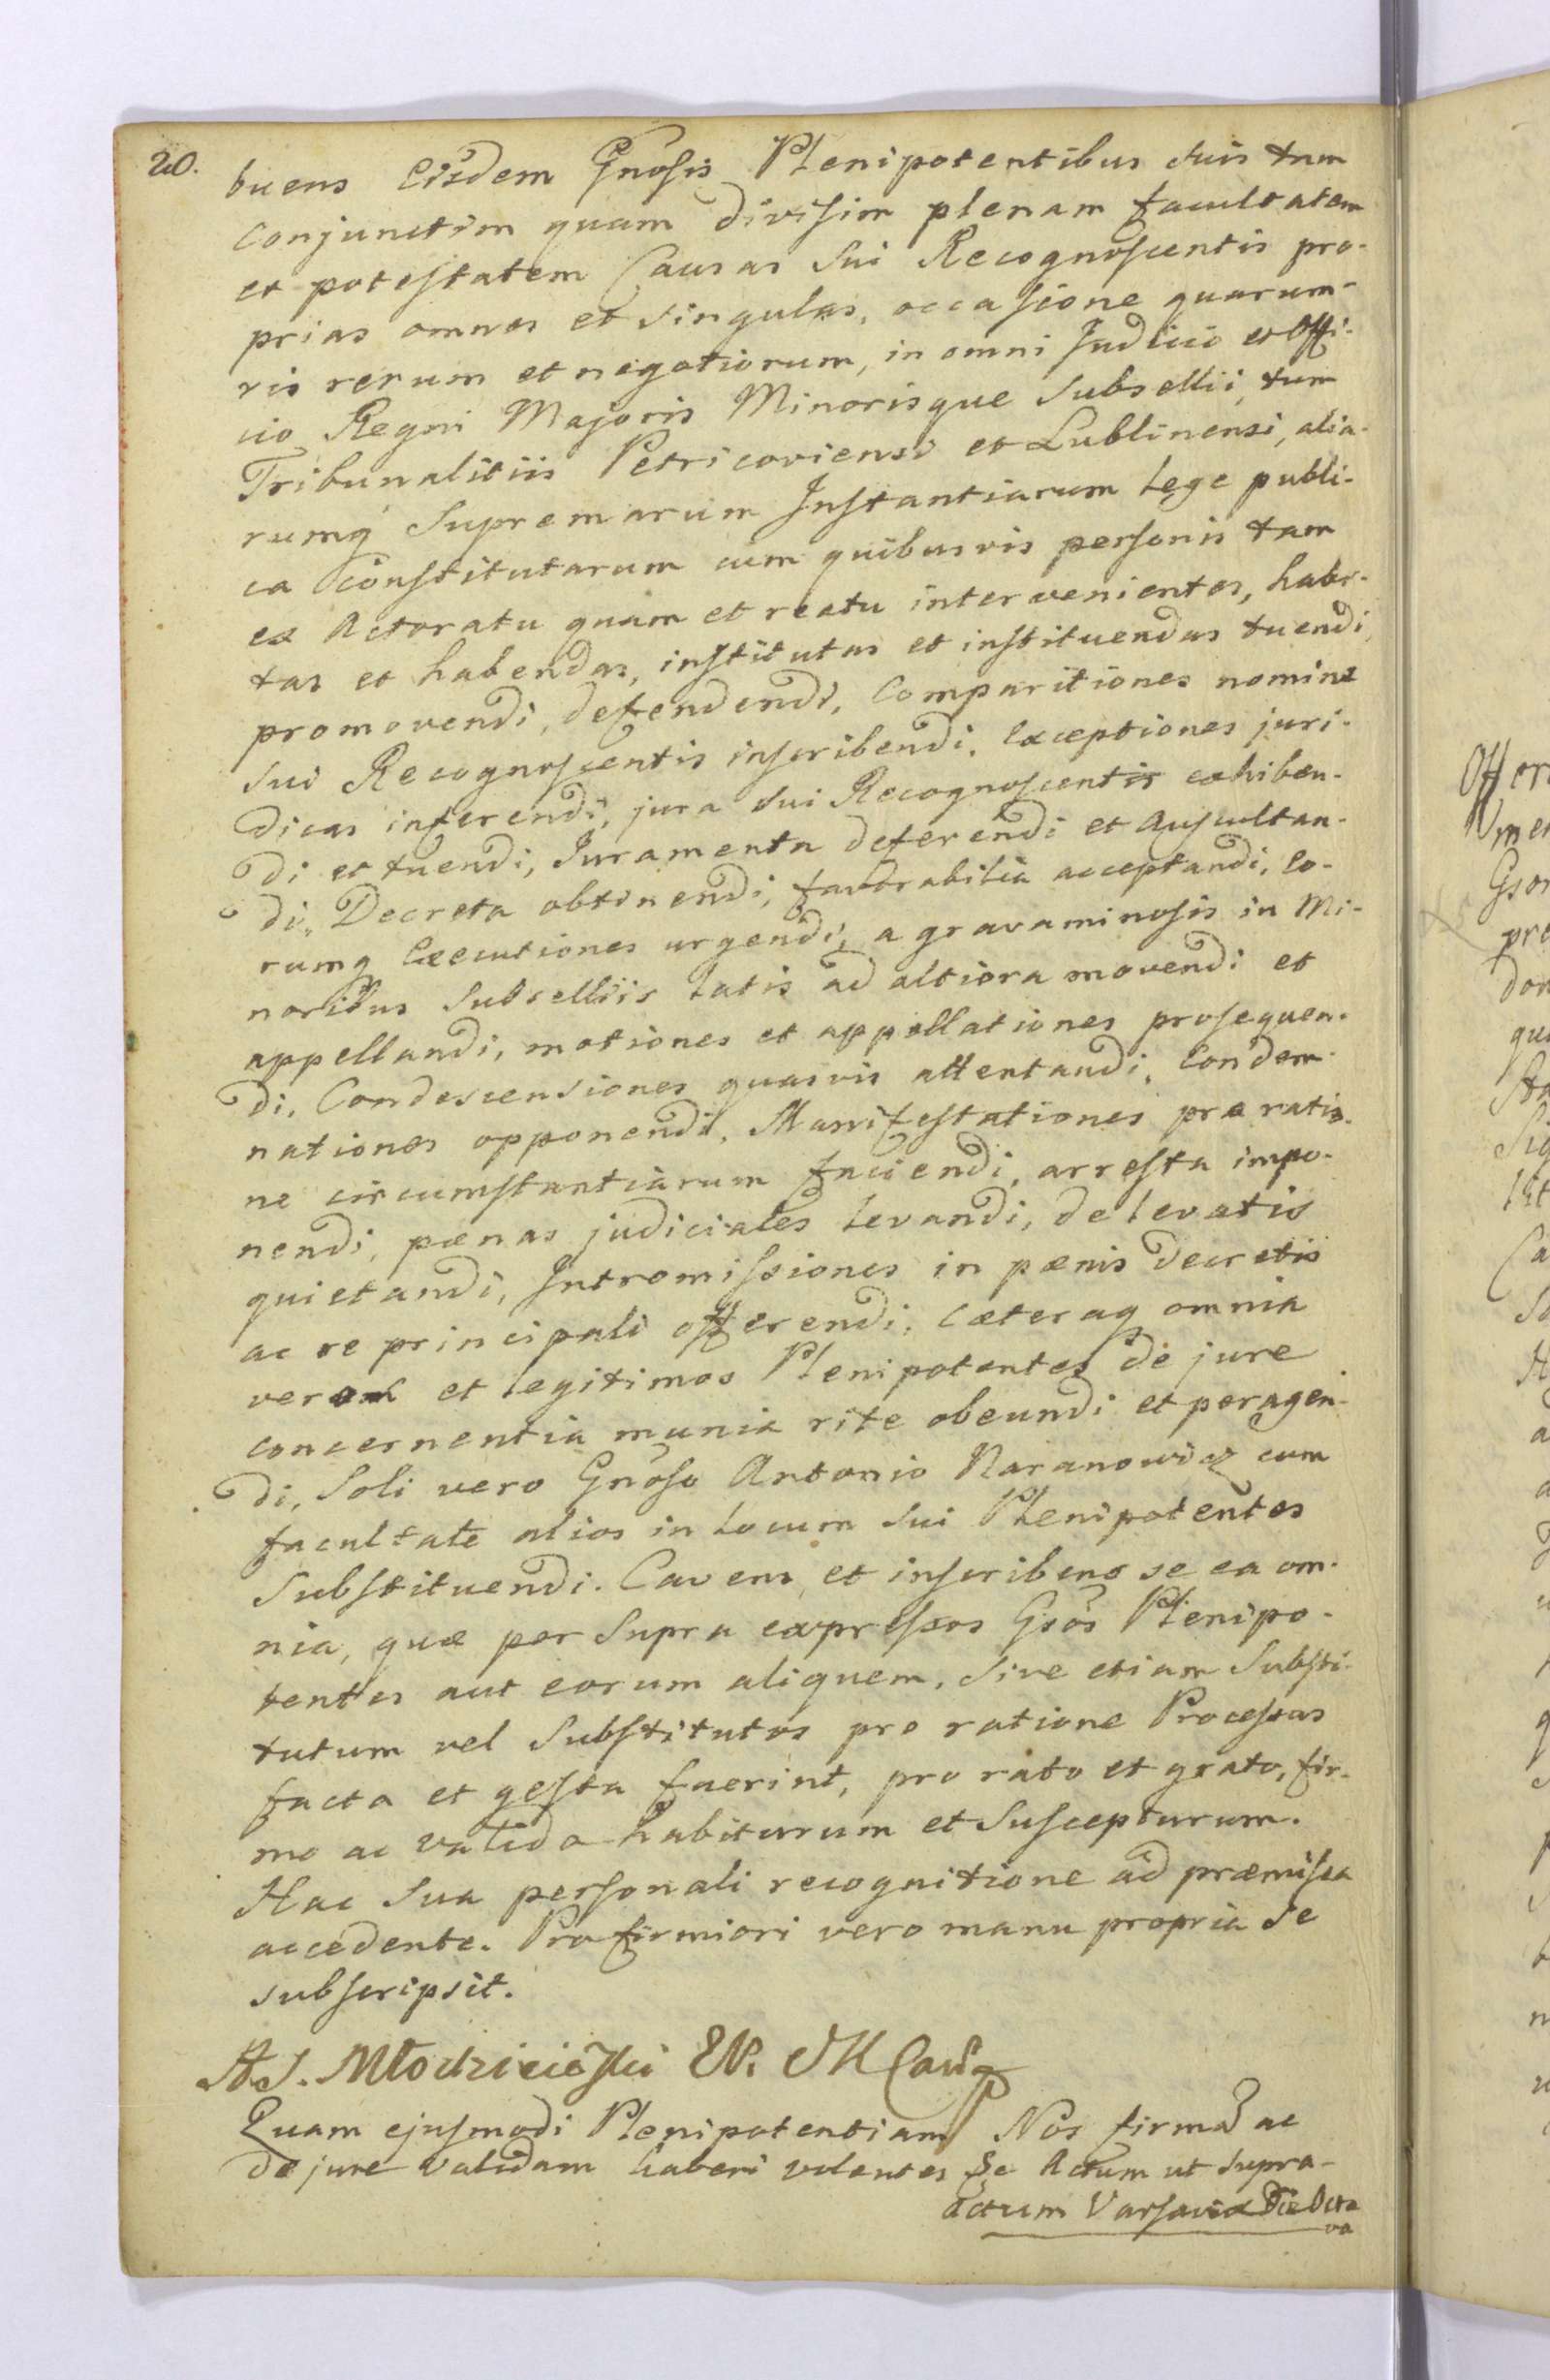 20.
buens Eisdem Gnosis Plenipotentibus suis tam
conjunctim quam divisim plenam facultatem
et potestatem Causas sui Recognoscentis pro-
prias omnes et singulas, occasione quarum-
vis rerum et negotiorum, in omni Judicio et Offi-
cio Regni Majoris Minorisque Subsellii, tum
Tribunalitiis Petricoviensi et Lublinensi, alia-
rumq Supremarum Instantiarum Lege publi-
ca constitutarum cum quibusvis personis tam
ex Actoratu quam et reatu intervenientes, habi-
tas et habendas, institutas et instituendas tuendi,
promovendi, defendendi, Comparitiones nomine
sui Recognoscentis inscribendi, Exceptiones juri-
dicas inferendi, jura sui Recognoscentis exhiben-
di et tuendi, Juramenta deferendi et auscultan-
di, Decreta obtinendi, favorabilia acceptandi, eo-
rumq Executiones urgendi, a gravaminosis in Mi-
noribus Subselliis latis ad altiora movendi et
appellandi, motiones et appellationes prosequen-
di, Condescensiones quasvis attentandi, Condem-
nationes opponendi, Manifestationes pro ratio-
ne circumstantiarum faciendi, arresta impo-
nendi, pœnas judiciales levandi, de levatis
quietandi, Intromissiones in pœnis decretis
ac re principali offerendi, cæteraq omnia
veros et legitimos Plenipotentes de jure
concernentia munia rite obeundi et peragen-
di, Soli vero Gnoso Antonio Naranowicz cum
facultate alios in locum sui Plenipotentes
Substituendi. Cavens et inscribens se ea om-
nia, quæ per supra expressos Gsos Plenipo-
tentes aut eorum aliquem, sive etiam Substi-
tutum vel Substitutos pro ratione Processus
facta et gesta fuerint, pro rato et grato, fir-
mo ac valido habiturum et suscepturum.
Hac sua personali recognitione ad præmissa
accedente. Pro firmiori vero manu propria se
subscripsit.
A. J. Młodzieiowski
Quam ejusmodi Plenipotentiam Nos firmā ac
de jure validam haberi volentes &c Actum ut supra-
Actum Varsaviæ Die Octa
va